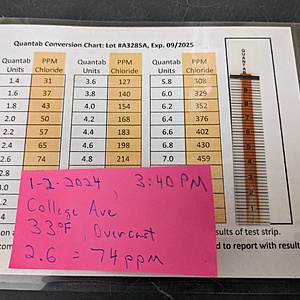 Quantab Conversion Chart: Lot #A3285A, Exp. 09/2025
Quantab Units PPM Chloride Quantab Units PPM Chloride Quantab Units PPM Chloride
1.4 31 3.6 127 5.8 308
1.6 37 3.8 140 6.0 329
1.8 43 4.0 154 6.2 352
2.0 50 4.2 168 6.4 376
2.2 57 4.4 183 6.6 402
2.4 65 4.6 198 6.8 430
2.6 74 4.8 214 7.0 459
2.8
3.0
QUANTAB
1-2-2024, 3:40 PM
College Ave
33°F, Overcast
2.6 = 74 ppm
sults of test strip.
d to report with result